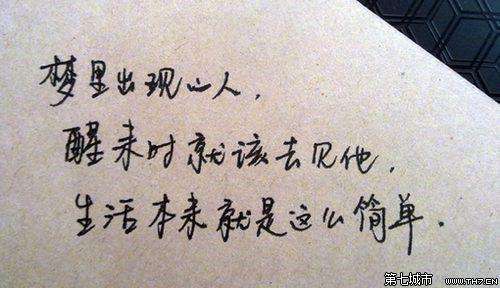 梦里出现的人，
醒来时就该去见他，
生活本来就是这么简单．
第七城市
WWW.TH7.CN